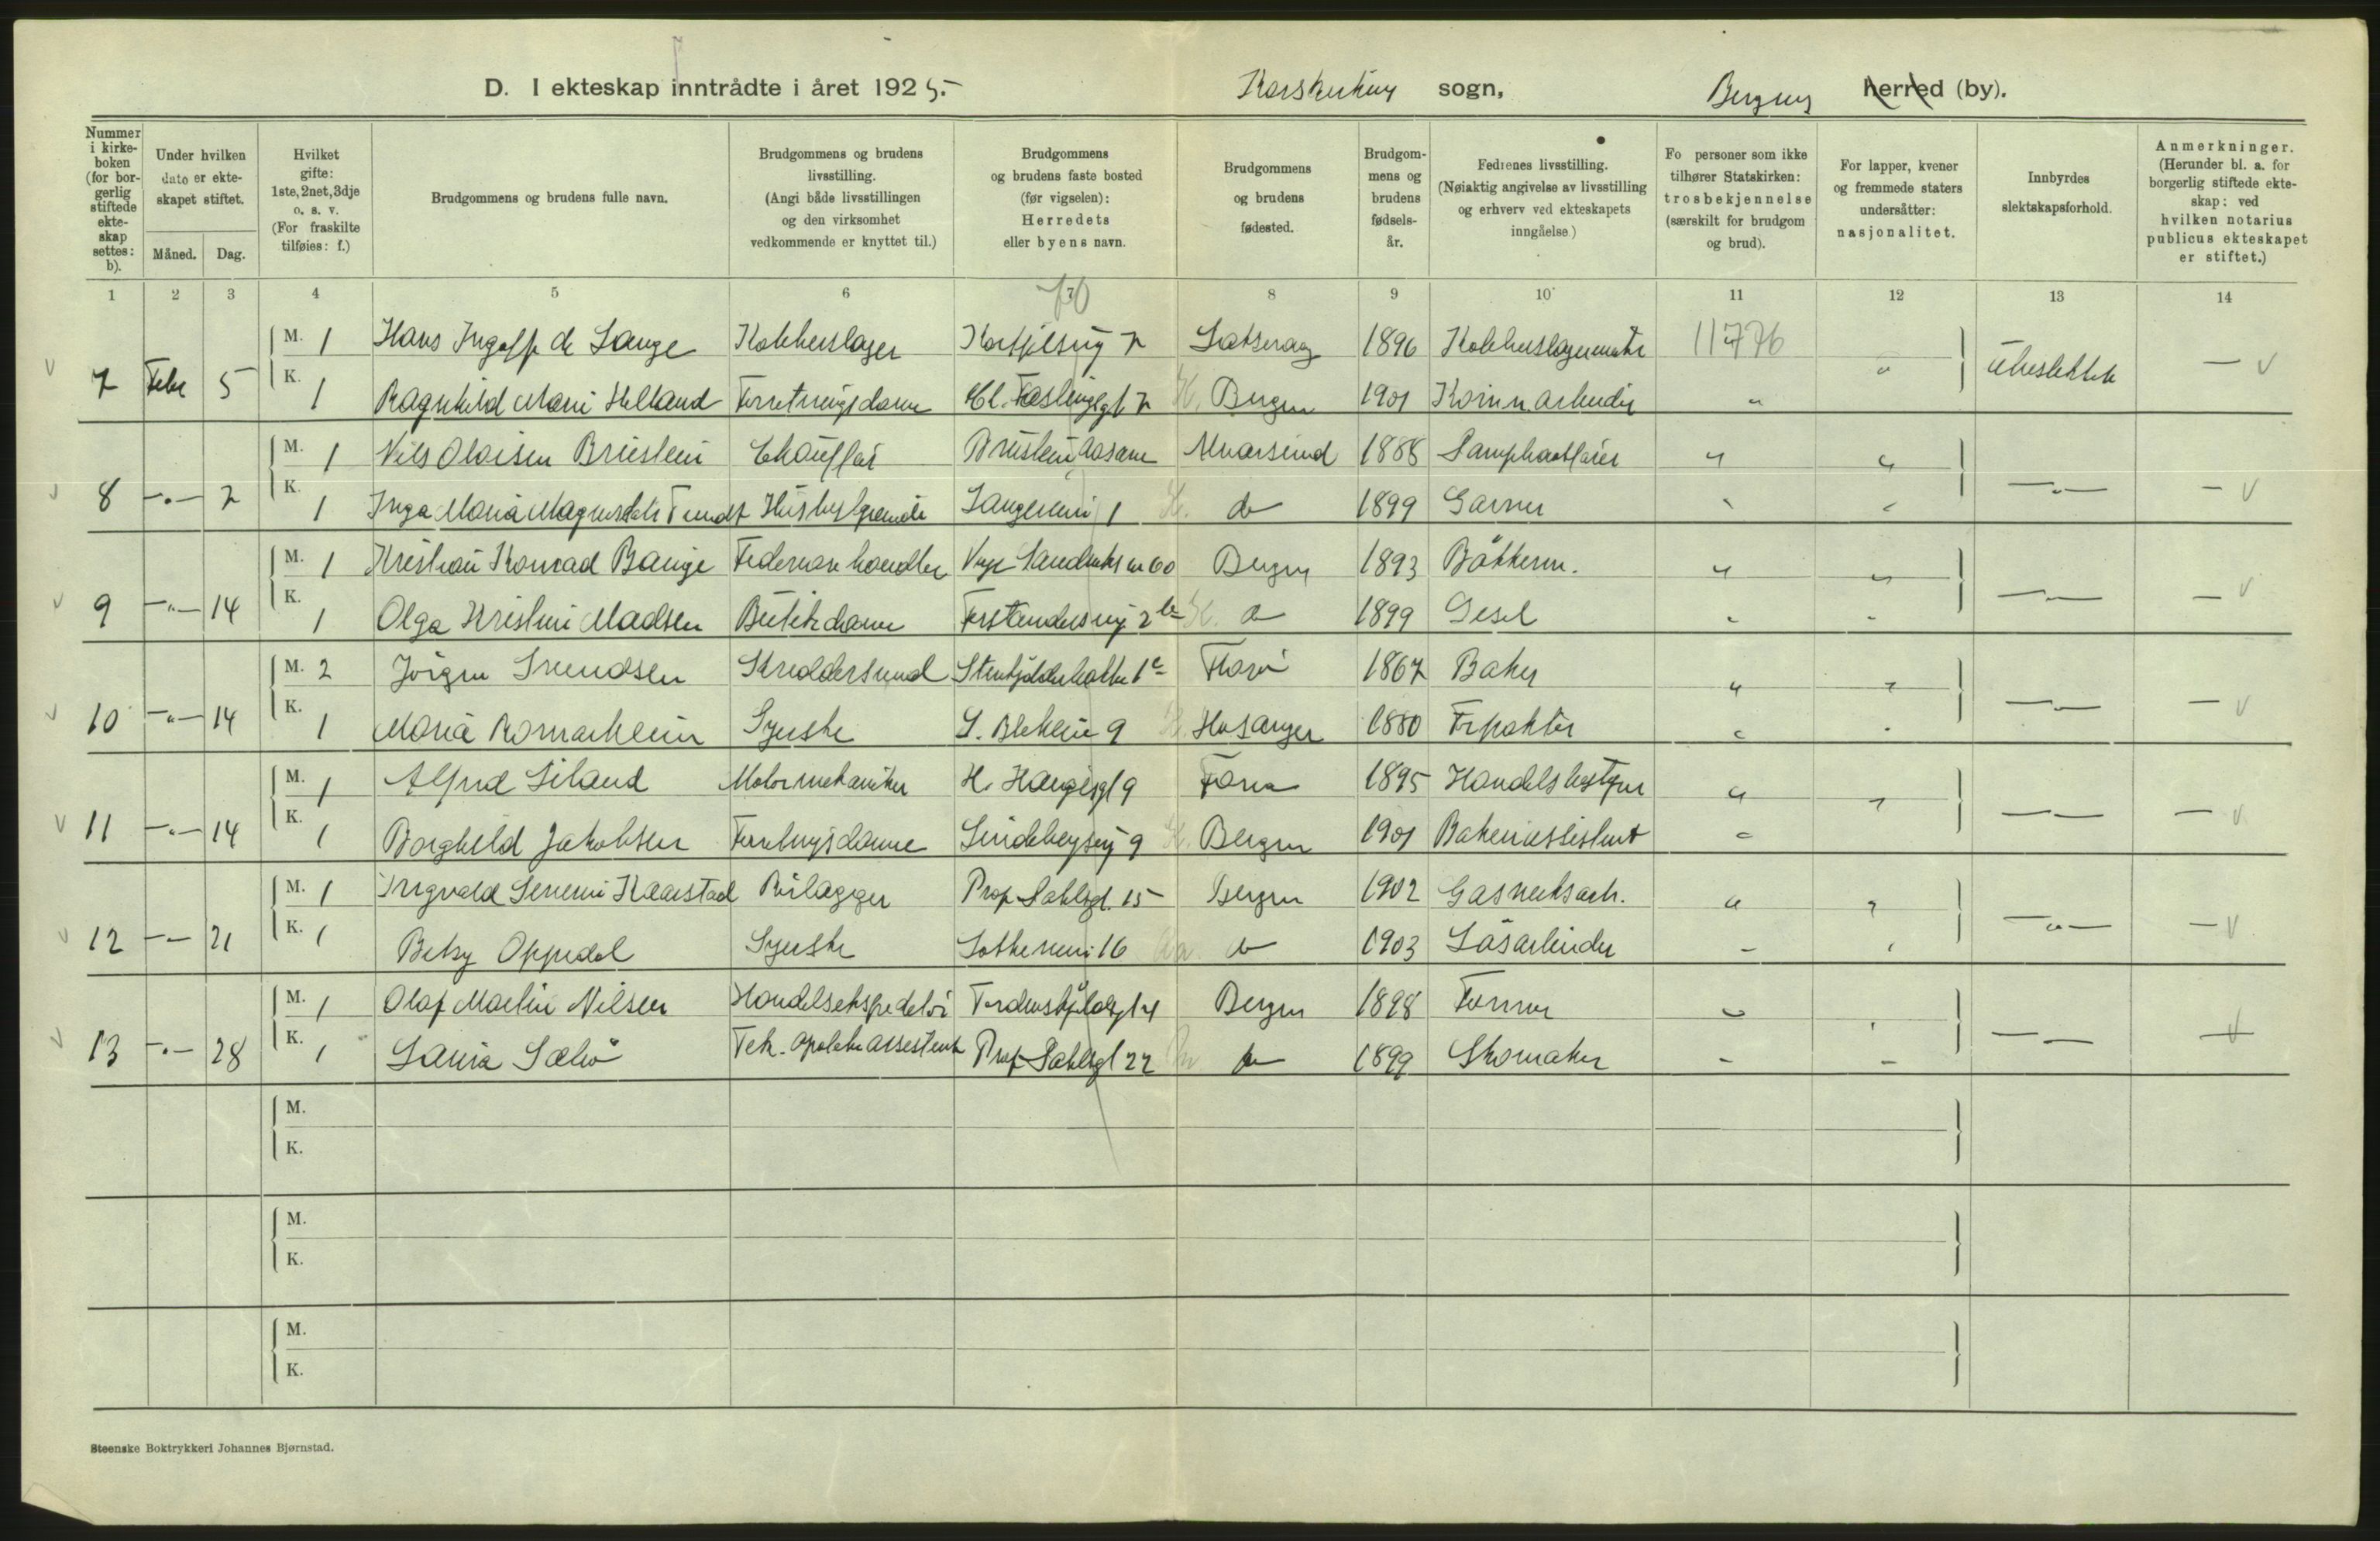 D. I ekteskap inntrådte i året 1925.
Korskirken sogn,
Bergens herred (by).
Nummer i kirkeboken (for borgerlig stiftede ekteskap settes: b).
Under hvilken dato er ekteskapet stiftet.
Måned. Dag.
Hvilket gifte: 1ste, 2net, 3dje o. s. v. (For fraskilte tilføies: f.)
Brudgommens og brudens fulle navn.
Brudgommens og brudens livsstilling. (Angi både livsstillingen og den virksomhet vedkommende er knyttet til.)
Brudgommens og brudens faste bosted (før vigselen): Herredets eller byens navn.
Brudgommens og brudens fødested.
Brudgommens og brudens fødselsår.
Fedrenes livsstilling. (Nøiaktig angivelse av livsstilling og erhverv ved ekteskapets inngåelse.)
Fo personer som ikke tilhører Statskirken: trosbekjennelse (særskilt for brudgom og brud).
For lapper, kvener og fremmede staters undersåtter: nasjonalitet.
Innbyrdes slektskapsforhold.
Anmerkninger. (Herunder bl. a. for borgerlig stiftede ekteskap: ved hvilken notarius publicus ekteskapet er stiftet.)
1 2 3 4 5 6 7 8 9 10 11 12 13 14
M. 1 Hans Ingolf de Lange Kobberslager Laksevaag 1896 Kobberslagermester 11776
7 Febr 5 K. 1 Ragnhild Marie Helland Forretningsdame Bergen 1901 Komm. arbeider " ubeslektet — v
M. 1 Nils Olaisen Brurstein Chauffør Aasane Alversund 1888 " "
8 -"- 7 K. 1 Inga Maria 1 do 1899 Garver —"— — v
M. 1 Kristian Konrad Bauge Federvarehandler 60 Bergen 1893 Bøkkerm. " "
9 -"- 14 K. 1 Olga Kristine Madsen Butikdame 2b do 1899 Gesel —"— — v
M. 2 Jørgen Svendsen Skreddersvend 1c Florø 1867 Baker " "
10 -"- 14 K. 1 Maria Romarheim Syerske 9 Hosanger 1880 —"— — v
M. 1 Alfred Liland Motormekaniker H. Haugesgt 9 Fana 1895 Handelsbestyrer " "
11 -"- 14 K. 1 Borghild Jakobsen Forretningsdame 9 Bergen 1901 — v
M. 1 Ingvald Severin Kaarstad Rørlægger Prof Dahlsgt. 15 Bergen 1902 Gasverksarb. " "
12 -"- 21 K. 1 Betsy Oppedal Syerske 16 do 1903 Løsarbeider —"— — v
M. 1 Olaf Martin Nilsen Handelsekspeditør Tordenskjoldsgt 4 Bergen 1898 Former
13 -"- 28 K. 1 Laura Sælø Tek. apoteker assistent Prof Dahlsgt 22 do 1899 Skomaker — v
M.
K.
M.
K.
M.
K.
Steenske Boktrykkeri Johannes Bjørnstad.